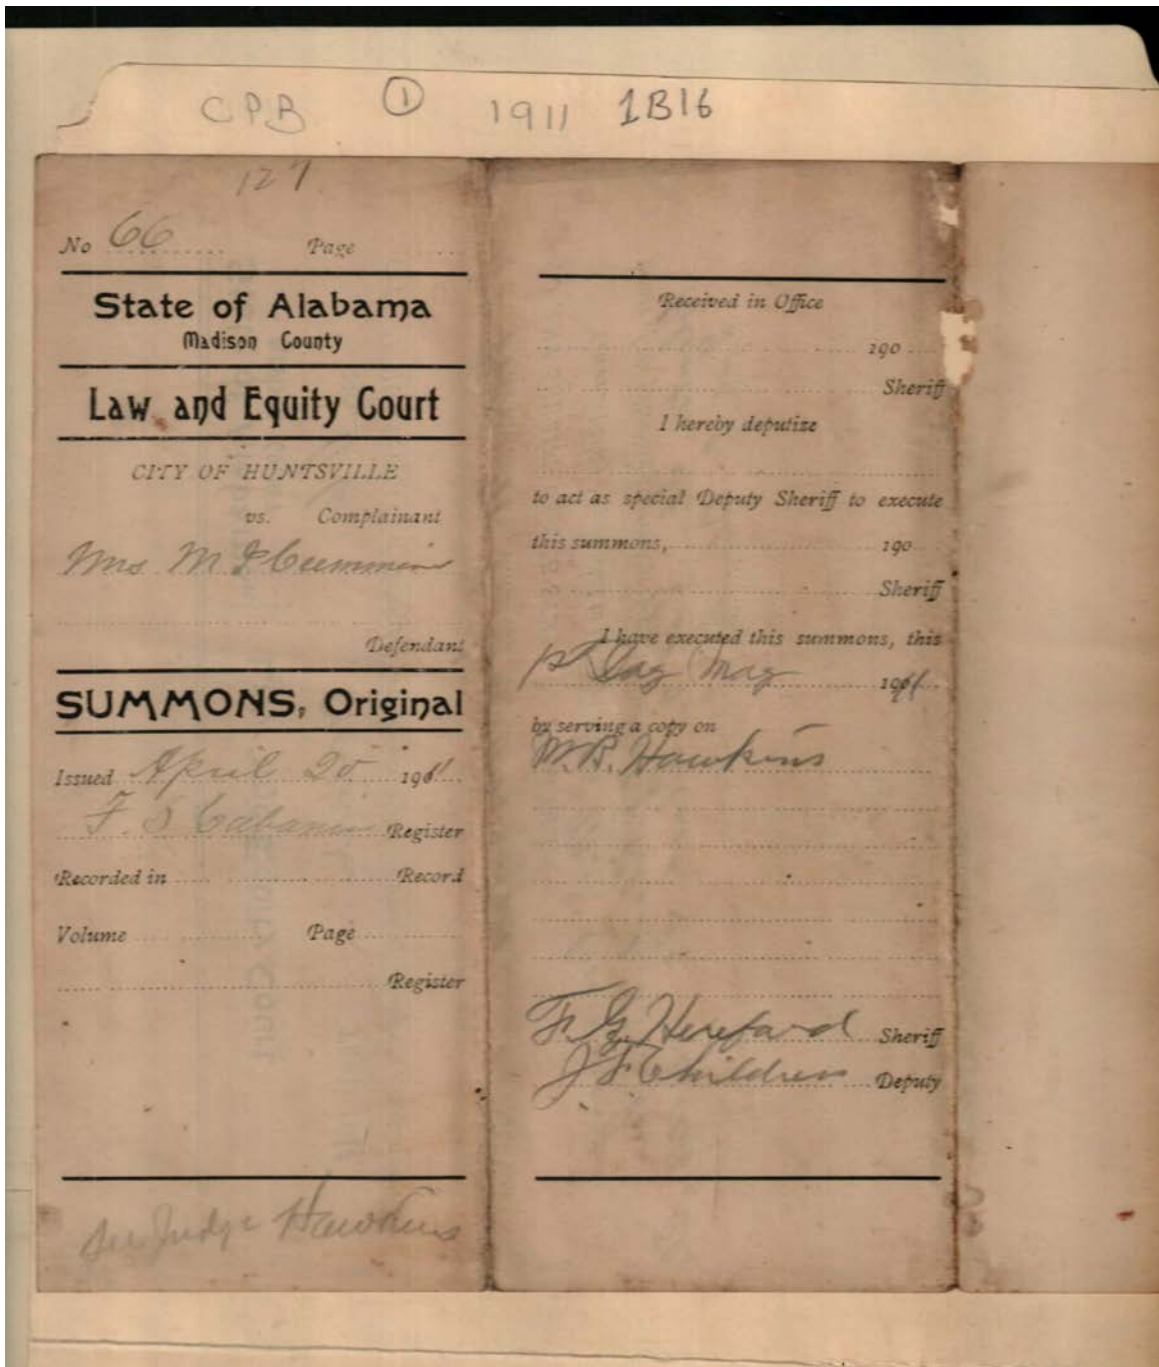 CPB ① 1911 1B16
127
No 66 Page
State of Alabama
Madison County
Law and Equity Court
CITY OF HUNTSVILLE
vs. Complainant
Mrs M
Defendant
SUMMONS, Original
Issued April 20 1911
F. S. Register
Recorded in Record
Volume Page
Register
Judge Hawkins
Received in Office
190
Sheriff
I hereby deputize
to act as special Deputy Sheriff to execute
this summons, 190
Sheriff
I have executed this summons, this
1st Day May 1911
by serving a copy on
M.B. Hawkins
F. G. Hereford Sheriff
J F Childress Deputy